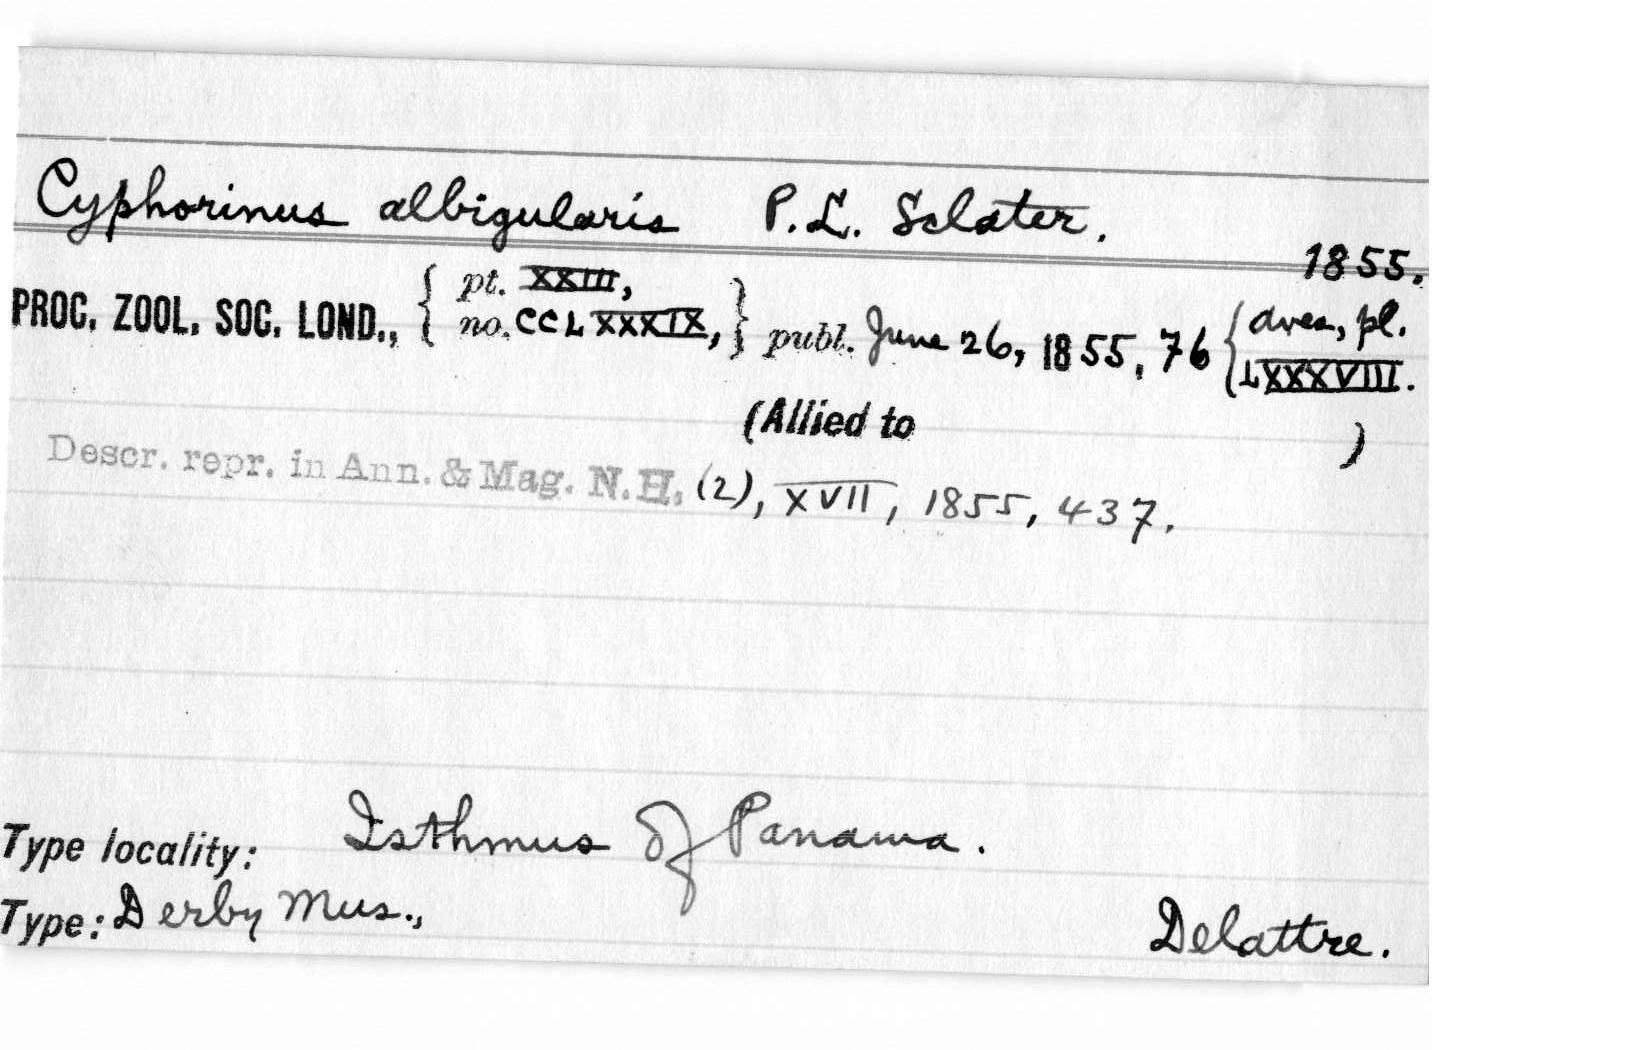 Cyphorinus albigularis P. L. Sclater.
1855.
PROC. ZOOL. SOC. LOND., { pt. XXIII, no. CCLXXXIX, } publ. June 26, 1855, 76 { aves, pl. LXXXVIII.
(Allied to )
Descr. repr. in Ann. & Mag. N.H. (2), XVII, 1855, 437.
Type locality: Isthmus of Panama.
Type: Derby Mus., Delattre.